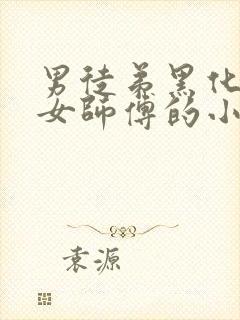 男徒弟黑化
女師傅的小
袁源